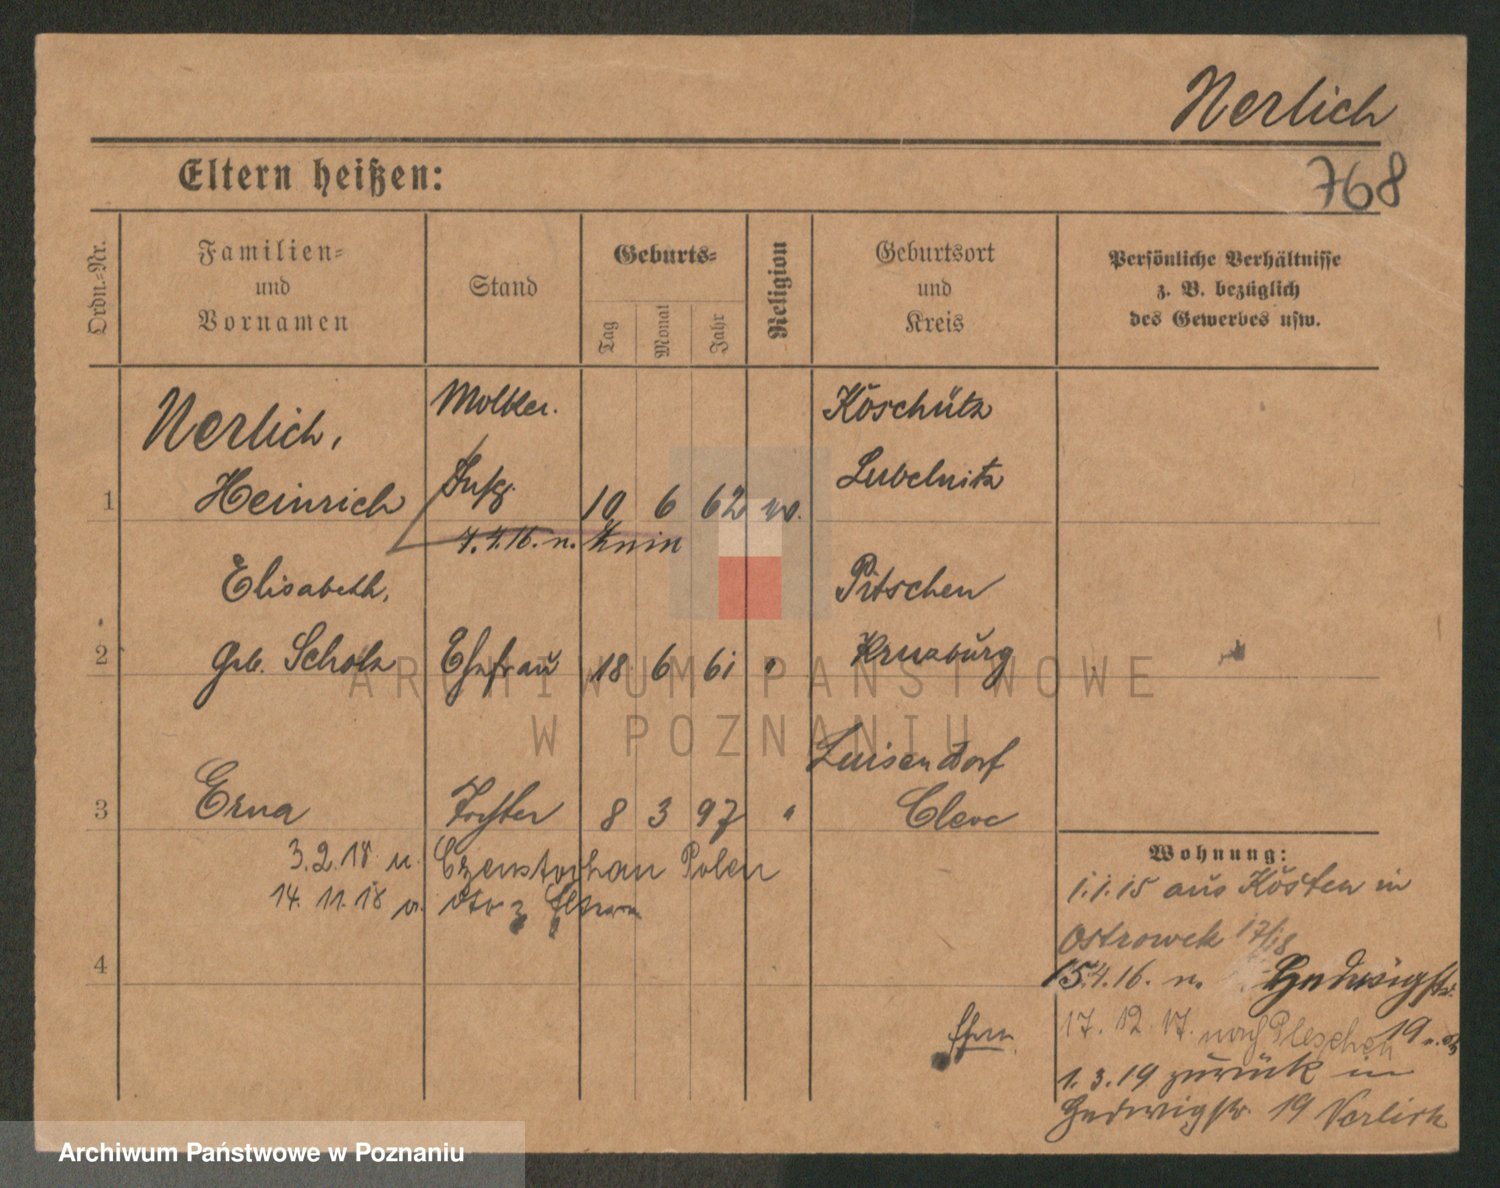 Nerlich
768
Eltern heißen:
Ordn.-Nr.
Familien-
und
Vornamen
Stand
Geburts-
Tag
Monat
Jahr
Religion
Geburtsort
und
Kreis
Persönliche Verhältnisse
z. B. bezüglich
des Gewerbes usw.
Nerlich,
Molker.
Köschütz
1
Heinrich
10 6 62
Lubelnitz
7.4.16. n. Znin
Elisabeth,
Pitschen
2
geb. Scholz
Ehefrau
18 6 61 "
Kruzburg
Luisendorf
3
Erna
Tochter
8 3 97 "
Cleve
3.2.18 n. Czenstochau Polen
14.11.18 v. dto z Eltern
4
Eltern
Wohnung:
1.1.15 aus Kosten in
Ostrowek 17/18
15.4.16. n. Hedwigstr.
19
17.12.17. nach Pleschen
1.3.19 zurück in
Hedwigstr. 19 Nerlich
ARCHIWUM PAŃSTWOWE
W POZNANIU
Archiwum Państwowe w Poznaniu